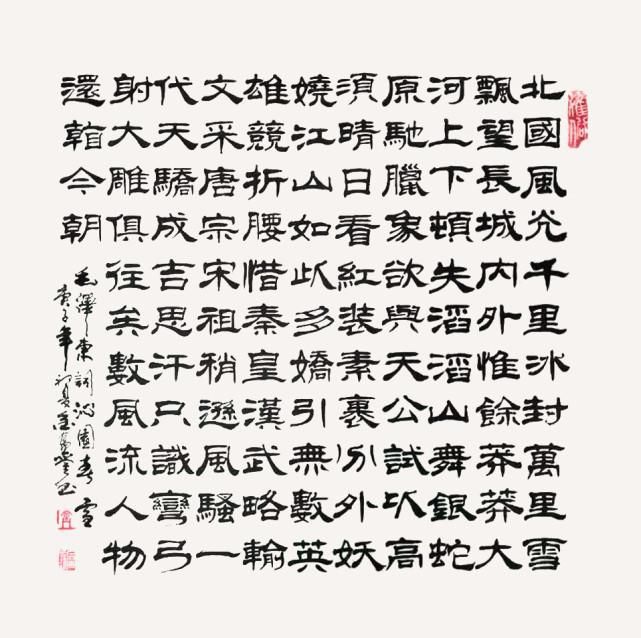 北國風光千里冰封萬里雪
飄望長城内外惟餘莽莽大
河上下頓失滔滔山舞銀蛇
原馳臘象欲與天公試比高
須晴日看紅裝素裹分外妖
嬈江山如此多嬌引無數英
雄競折腰惜秦皇漢武略輸
文采唐宗宋祖稍遜風騷一
代天驕成吉思汗只識彎弓
射大雕俱往矣數風流人物
還看今朝
毛澤東詞沁園春雪
庚子年初夏